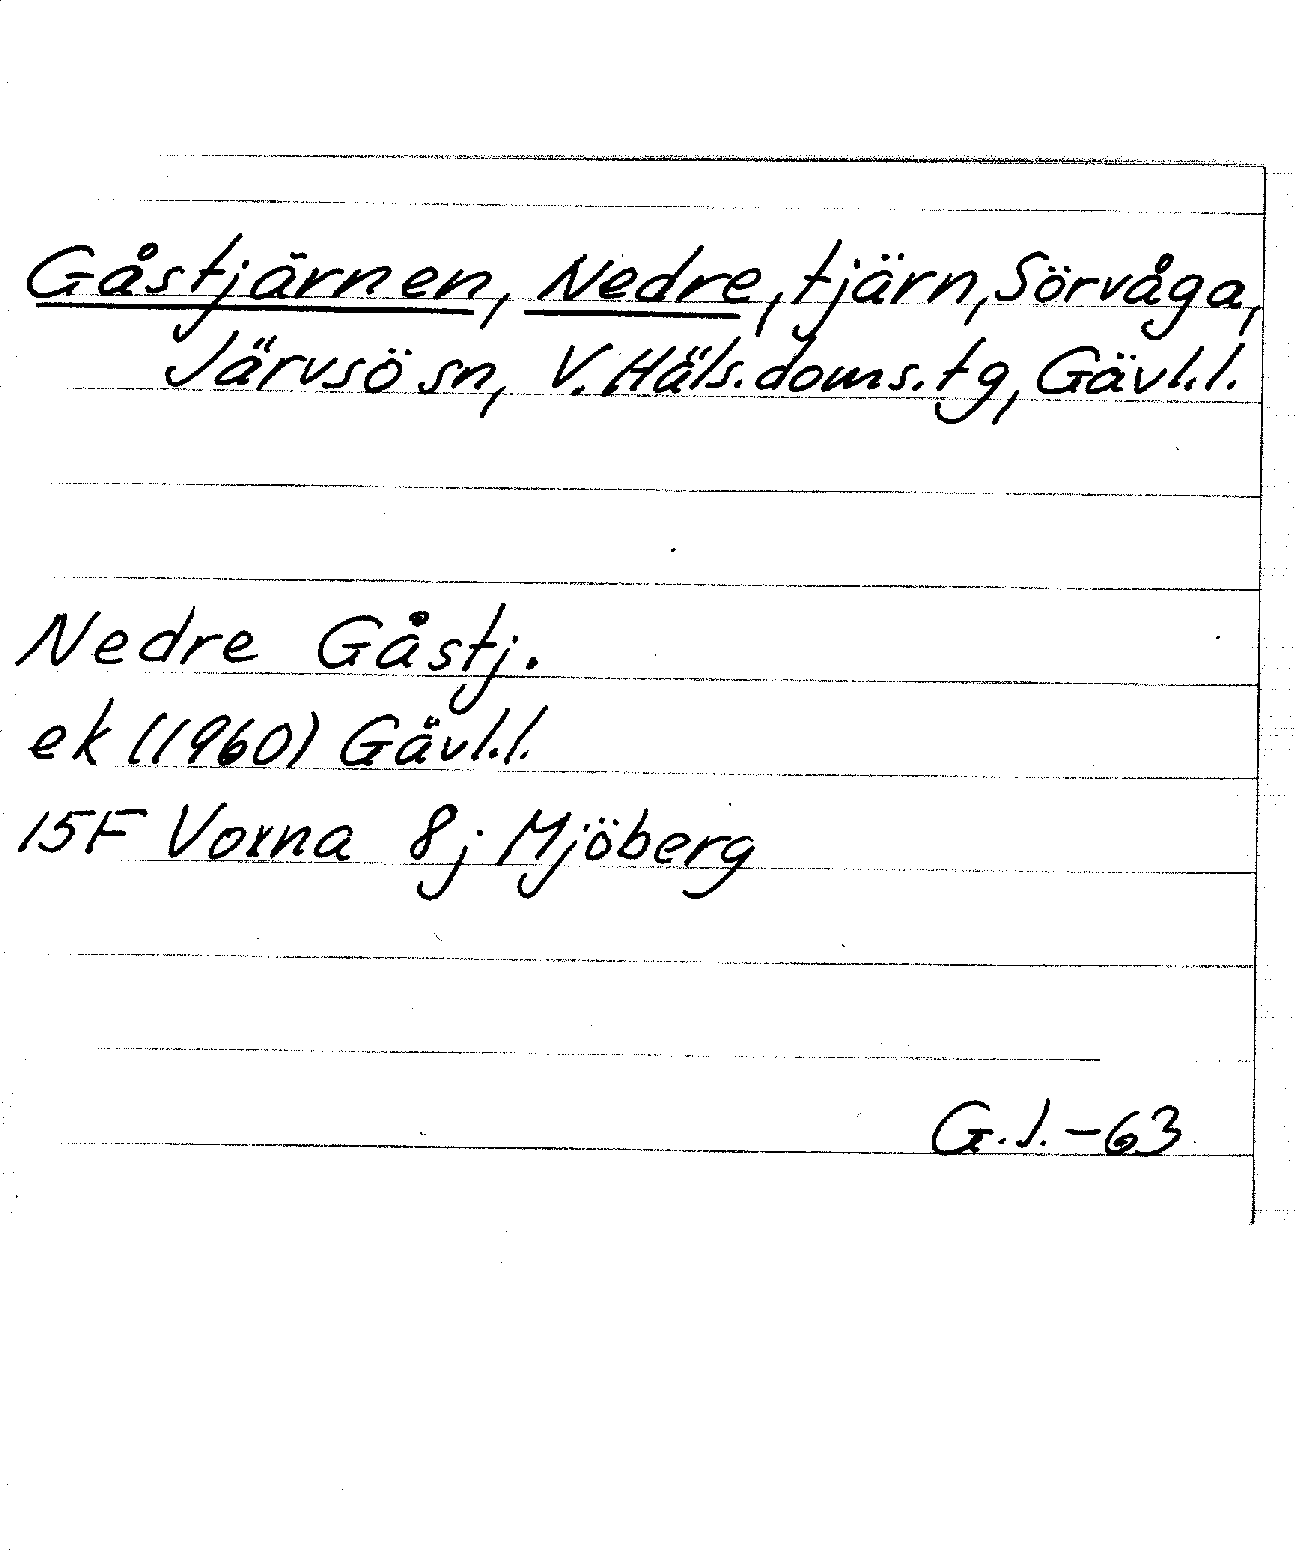 Gåstjärnen, Nedre, tjärn, Sörvåga,
Järvsö sn, V. Häls. doms. tg, Gävl. l.
Nedre Gåstj.
ek (1960) Gävl. l.
15F Voxna 8j Mjöberg
G. J. -63